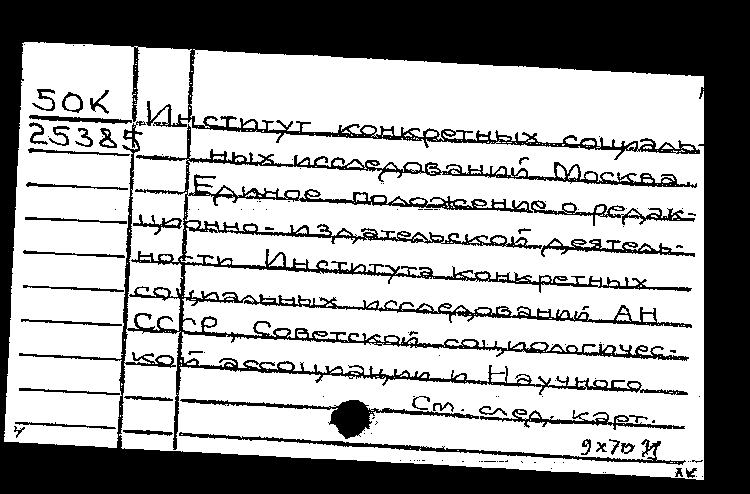 50К
25385
Институт конкретных социаль-
ных исследований Москва.
Единое положение о редак-
ционно-издательской деятель-
ности Института конкретных
социальных исследований АН
СССР, Советской социологичес-
кой ассоциации и Научного
См. след. карт.